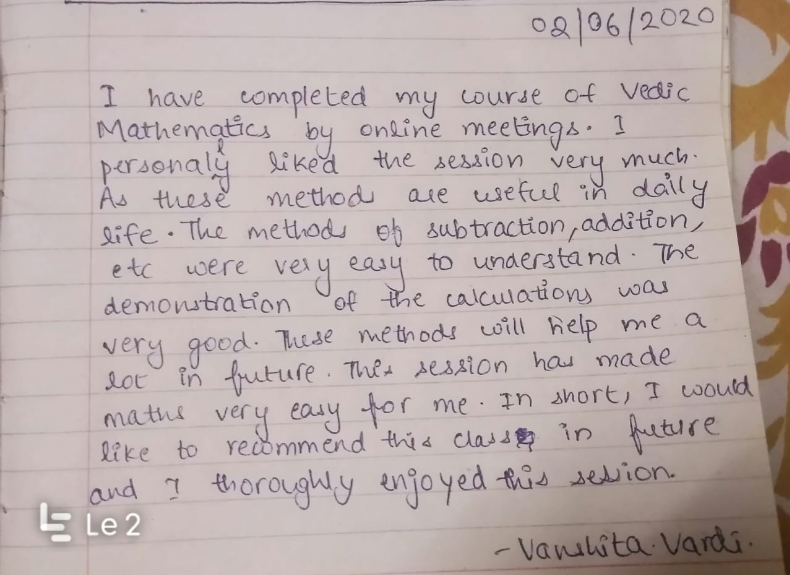 02/06/2020
I have completed my course of Vedic
Mathematics by online meetings. I
personally liked the session very much.
As these method are useful in daily
life. The methods of subtraction, addition,
etc were very easy to understand. The
demonstration of the calculations was
very good. These methods will help me a
lot in future. This session has made
maths very easy for me. In short, I would
like to recommend this class in future
and I thoroughly enjoyed this session.
Le 2
- Vanshita. Vardi.